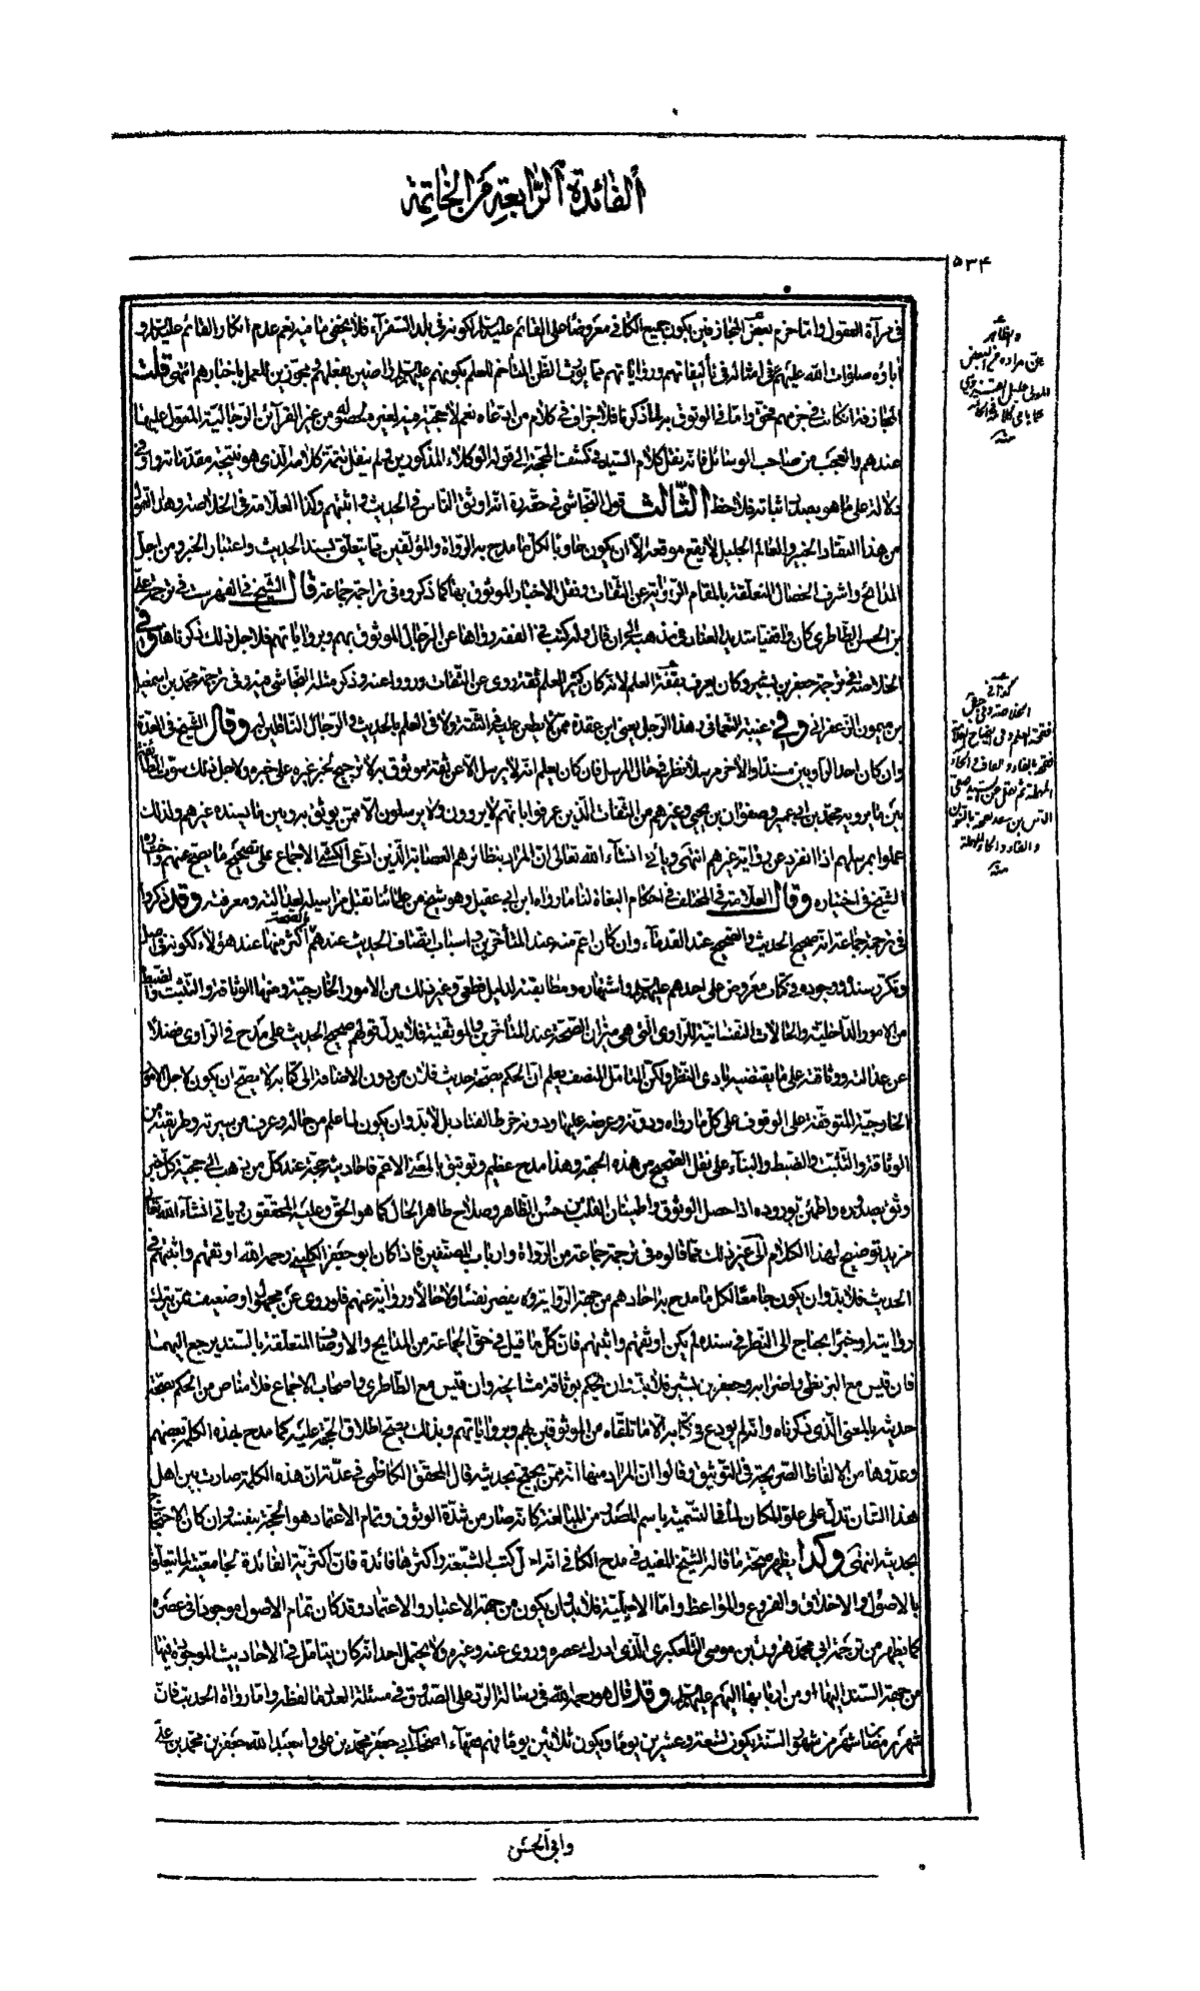 ألفائدة الرابعة من الخاتمة
٥٣٤
في مرآة العقول واما جزم بعض المجازفين بكون جميع الكافي معروضا على القائم عليه السلام لكونه في بلد السفراء فلا يخفى ما فيه نعم عدم انكار القائم عليه السلام و
آبائه صلوات الله عليهم عليه في امثاله في تأليفاتهم ورواياتهم مما يورث الظن المتاخم للعلم بكونهم عليهم السلام راضين بفعلهم ومجوزين للعمل باخبارهم انتهى قلت
المجازفة ان كانت في جزمهم فحق واما في الوثوق به لما ذكرنا فلا جزاف في كلام من ادعاه نعم لا حجية فيه لغيره
عندهم والعجب من صاحب الوسائل فانه نقل كلام السيد في كشف المحجة الى قوله الوكلاء المذكورين ولم ينقل تتمة كلامه الذي هو نتيجة مقدماته واوفى
دلالة على ما هو بصدد اثباته فلاحظ الثالث قول النجاشي في حقه ره انه اوثق الناس في الحديث واثبتهم وكذا العلامة في الخلاصة وهذا القول
من هذا النقاد الخبير والعالم الجليل لا يقع موقعه الا ان يكون حاويا لكل ما مدح به الرواة والمؤلفين مما يتعلق بسند الحديث واعتبار الخبر ومن اجل
المدائح واشرف الخصال المتعلقة بالمقام الرواية عن الثقات ونقل الاخبار الموثوق بها كما ذكروه في تراجم جماعة قال الشيخ في الفهرست في ترجمة علي
بن الحسن الطاطري كان واقفيا شديد العناد في مذهبه الى ان قال وله كتب في الفقه رواها عن الرجال الموثوق بهم وبرواياتهم فلاجل ذلك ذكرناها وفي
الخلاصة في ترجمة جعفر بن بشير وكان يعرف بقفة العلم لانه كان كثير العلم ثقة روى عن الثقات ورووا عنه وذكر مثله النجاشي فيه وفي ترجمة محمد بن اسمعيل
بن ميمون الزعفراني وفي غيبة النعماني وهذا الرجل يعني ابن عقدة ممن لا يطعن عليه في الثقة ولا في العلم بالحديث والرجال الناقلين له وقال الشيخ في العدة
وان كان احد الراويين مسندا والآخر مرسلا نظر في حال المرسل فان كان يعلم انه لا يرسل الا عن ثقة موثوق به لا ترجيح لخبر غيره على خبره ولاجل ذلك سوت الطائفة
بين ما يرويه محمد بن ابي عمير وصفوان بن يحيى وغيرهم من الثقات الذين عرفوا بانهم لا يروون ولا يرسلون الا ممن يوثق به وبين ما اسنده غيرهم ولذلك
عملوا بمرسلهم اذا انفرد عن رواية غيرهم انتهى وياتي انشاء الله تعالى ان المراد بنظائرهم العصابة الذين ادعى الكشي الاجماع على تصحيح ما يصح عنهم
الشيخ في اختياره وقال العلامة في المختلف في احكام البغاة لنا ما رواه ابن ابي عقيل وهو شيخ من علمائنا تقبل مراسيله لعدالته ومعرفته وقد ذكروا
في ترجمة جماعة انه صحيح الحديث والصحيح عند القدماء وان كان اعم منه عند المتأخرين واسباب اتصاف الحديث عندهم بالصحة اكثر منها عند هؤلاء ككونه في اصل
وتكرر سنده ووجوده في كتاب معروض على احدهم عليهم السلام واشتهاره ومطابقته لدليل قطعي وغير ذلك من الامور الخارجية ومنها الوثاقة والتثبت والضبط
من الامور الداخلية والحالات النفسانية للراوي التي هي ميزان الصحة عند المتأخرين والموثقية فلا يدل قولهم صحيح الحديث على مدح في الراوي فضلا
عن عدالته ووثاقته على ما يقتضيه بادي النظر ولكن المتامل المنصف يعلم ان الحكم بصحة حديث فلان من دون الاضافة الى كتابه لا يصح ان يكون لاجل الامور
الخارجية المتوقفة على الوقوف على كل ما رواه ودونه وعرضه عليها ودونه خرط القتاد بل لا بد وان يكون لما علم من حاله وعرف من سيرته وطريقته من
الوثاقة والتثبت والضبط والبناء على نقل الصحيح من هذه الجهة وهذا مدح عظيم وتوثيق بالمعنى الاعم فاحاديثه حجة عند كل من ذهب الى حجية كل خبر
وثق بصدوره واطمئن بوروده اذا حصل الوثوق واطمينان القلب من حسن الظاهر وصلاح ظاهر الحال كما هو الحق وعليه المحققون وياتي انشاء الله تعالى
مزيد توضيح لهذا الكلام الى غير ذلك مما قالوه في ترجمة جماعة من الرواة وارباب المصنفين فاذا كان ابو جعفر الكليني رحمه الله اوثقهم واثبتهم في
الحديث فلا بد وان يكون جامعا لكل ما مدح به آحادهم من جهة الرواية ولا يقصر نفسا ولا حالا ورواية عنهم فلو روى عن مجهول او ضعيف ممن يترك
روايته او خبرا يحتاج الى النظر في سنده لم يكن اوثقهم واثبتهم فان كل ما قيل في حق الجماعة من المدايح والاوصاف المتعلقة بالسند يرجع اليهما
فان قيس مع البزنطي واضرابه وجعفر بن بشير فلا بد وان يحكم بوثاقة مشايخه وان قيس مع الطاطري واصحاب الاجماع فلا مناص من الحكم بصحة
حديثه بالمعنى الذي ذكرناه وانه لم يودع في كتابه الا ما تلقاه من الموثوقين بهم وبرواياتهم وبذلك يصح اطلاق الحجة عليه كما مدح بهذه الكلمة بعضهم
وعدوها من الالفاظ الصريحة في التوثيق وقالوا ان المراد منها انه ممن يحتج بحديثه قال المحقق الكاظمي في عدته ان هذه الكلمة صارت بين اهل
هذا الشان تدل على علو المكان لما في التسمية باسم المصدر من المبالغة كانه صار من شدة الوثوق وتمام الاعتماد هو الحجة بنفسه وان كان الاحتجاج
بحديثه انتهى وكذا يظهر صحة ما قاله الشيخ المفيد في مدح الكافي انه اجل كتب الشيعة واكثرها فائدة فان اكثرية الفائدة لجامعيته لما يتعلق
بالاصول والاخلاق والفروع والمواعظ واما الاجلية فلا بد وان يكون من جهة الاعتبار والاعتماد وقد كان تمام الاصول موجودا في عصره
كما يظهر من ترجمة ابي محمد هرون بن موسى التلعكبري الذي ادرك عصره وروى عنه وغيره ولا يحتمل احد انه كان يتامل في الاحاديث الموجودة فيها
من جهة السند اليها او من اربابها اليهم عليهم السلام وقد قال هو رحمه الله في رسالة الرد على الصدوق في مسئلة العدد ما لفظه واما رواة الحديث فان
شهر رمضان شهر من شهور السنة يكون تسعة وعشرين يوما ويكون ثلاثين يوما فهم فقهاء اصحاب ابي جعفر محمد بن علي وابي عبد الله جعفر بن محمد بن علي
وابي الحسن